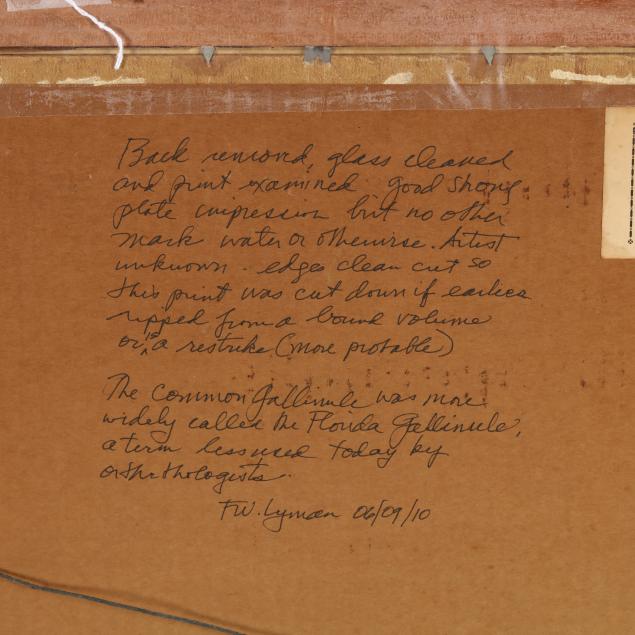 Back removed, glass cleaned
and print examined good strong
plate impression but no other
mark water or otherwise. Artist
unknown - edges clean cut so
this print was cut down if earlier
ripped from a bound volume
or, is a restrike (more probable)
The common Gallinule was more
widely called the Florida Gallinule,
a term less used today by
orthithologists.
F.W. Lyman 06/09/10